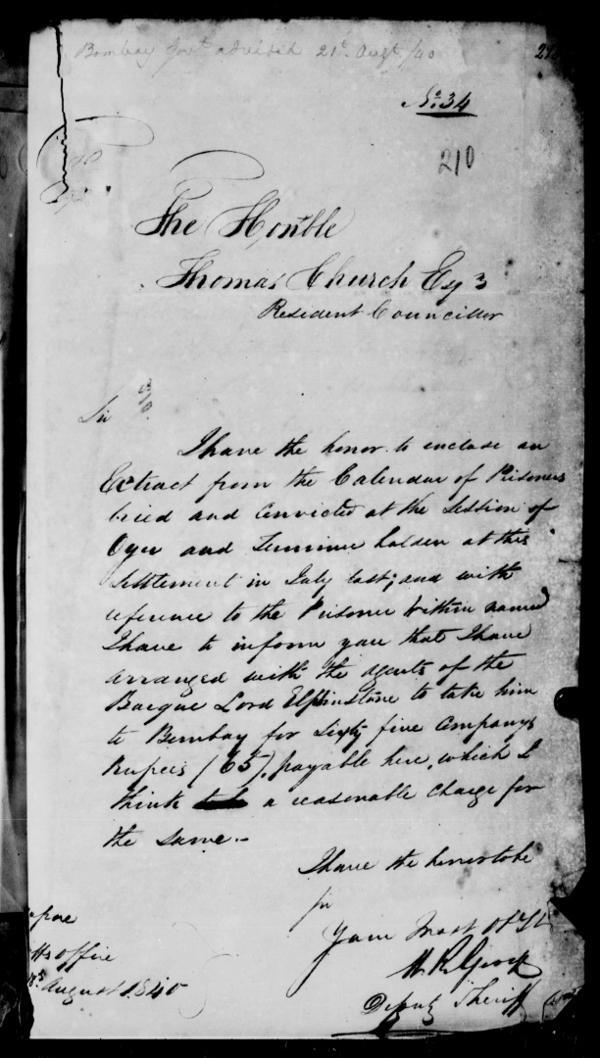 Bombay Govt advised 21st Augt /40
No. 34
210
The Honble
Thomas Church Esq
Resident Councillor
Sir
I have the honor to enclose an
Extract from the Calendar of Prisoners
tried and Convicted at the Session of
Oyer and Terminer holden at this
Settlement in July last; and with
reference to the Prisoner within named
I have to inform you that I have
arranged with the agents of the
Barque Lord Elphinstone to take him
to Bombay for Sixty five Company's
Rupees (65), payable here, which I
think a reasonable charge for
the same.-
I have the honor to be
Sir
Your Most Obt
Deputy Sheriff
apore
ffs office
August 1840